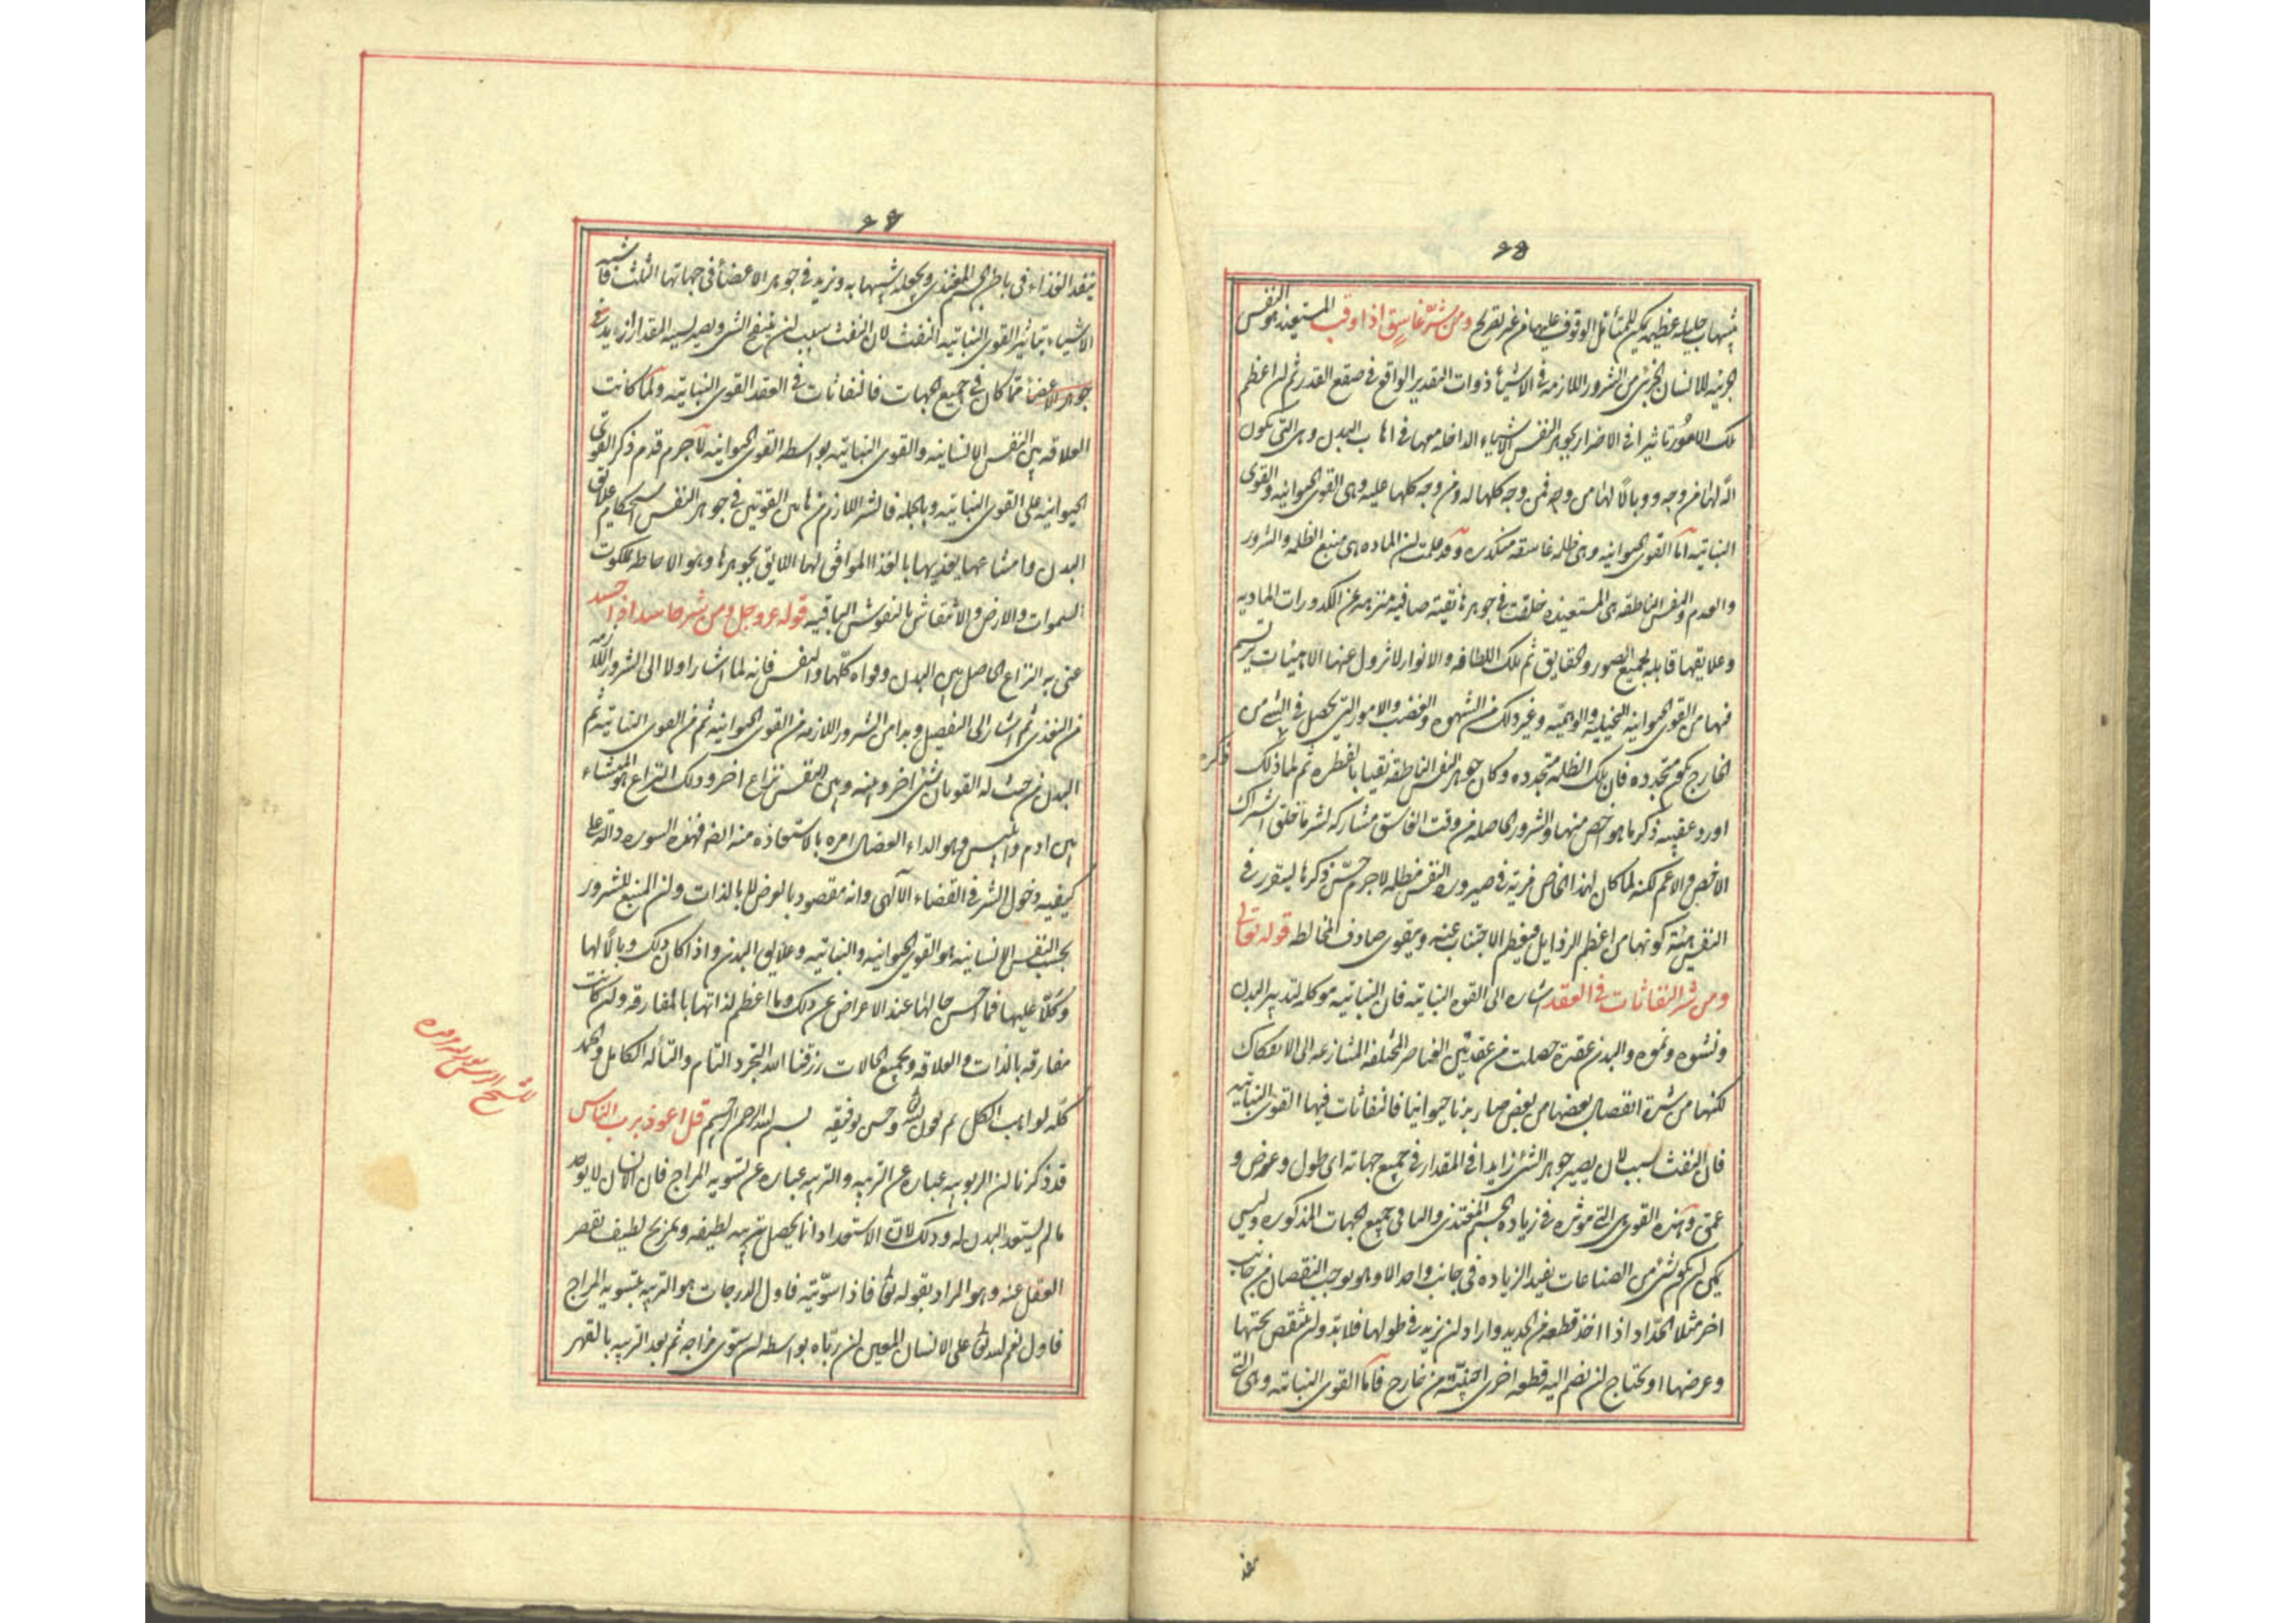 ٦٥
جليلة عظيمة يمكن للمتأمل الوقوف عليها من غير تصريح ومن شرّ غاسق اذا وقب المستعيذ هو النفس
الجزئيه للانسان الجزئى من الشرور اللازمه فى الاشياء ذوات التقدير الواقع فى صقع القدر ثم ان اعظم
تلك الامور تاثيرا فى الاضرار بجوهر النفس الاشياء الداخله معها فى اهاب البدن وهى التى تكون
آلة لها من وجه ووبالاً لها من وجه فمن وجه كلها له ومن وجه كلها عليه وهى القوى الحيوانيه والقوى
النباتيه اما القوى الحيوانيه وهى ظلمه غاسقه متكدره وقد علمت ان الماده هى منبع الظلمه والشرور
والعدم والنفس الناطقه هى المستعيذه خلقت فى جوهرها نقيّة صافيه منزهه عن الكدورات الماديه
وعلايقها قابله لجميع الصور والحقايق ثم تلك اللطافه والانوار لا تزول عنها الا بهيئات ترتسم
فيها من القوى الحيوانيه التخيليه والوهميّه وغير ذلك من الشهوه والغضب والامور التى تحصل فى الشئ من
الخارج يكون متجدده فان تلك الظلمه متجدده وكان جوهر النفس الناطقه نقيا بالفطره ثم لما ذكر ذلك
اورد عقيبه ذكر ما هو اخص منها والشرور الحاصله من وقت الغاسق مشاركه لشر ما خلق اشتراك
الاخص والاعم لكنه لما كان لهذا الخاص مزيّة فى صيروره النفس مظلمه لاجرم حسّن ذكرها ليتقرر فى
النفس هيئة كونها من اعظم الرذايل فيعظم الاجتناب عنه ويقوى صادف المخالطه قوله تعالى
ومن شر النفاثات فى العقد اشاره الى القوه النباتيه فان النباتيه موكله لتدبير البدن
ونشوه ونموه والبدن عقدة حصلت من عقد بين العناصر المختلفه المتنازعه الى الانفكاك
لكنها من شدة انفصال بعضها من بعض صار بدنا حيوانيا فالنفاثات فيها القوى النباتيه
فان النفث سبب لان يصير جوهر الشئ زايدا فى المقدار فى جميع جهاته اى طول وعرض و
عمق وهذه القوى هى التى موثره فى زياده الجسم المغتذى والنامى فى جميع الجهات المذكوره وليس
يمكن ان يكون شئ من الصناعات يفيد الزياده فى جانب واحد الا وهو يوجب النقصان من جانب
اخر مثلا الحدّاد اذا اخذ قطعه من الحديد واراد ان يزيد فى طولها فلابدّ وان ينقص ثخنها
وعرضها او يحتاج ان يضم اليه قطعه اخرى اجنبيّة من خارج فأما القوى النباتيه وهى التى
ينفذ
٦٦
ينفذ الغذاء فى باطن الجسم المغتذى ويجعله شبيها به ويزيد فى جوهر الاعضاء فى جهاتها الثلث فاشبه
الاشياء بتأثير القوى النباتيه النفث لان النفث سبب لان ينتفخ الشئ ويصير بسببه المقدار ازيد فى
جوهر الاعضاء مما كان فى جميع الجهات فالنفاثات فى العقد القوى النباتيه ولما كانت
العلاقه بين النفس الانسانيه والقوى النباتيه بواسطه القوى الحيوانيه لاجرم قدم ذكر القوى
الحيوانيه على القوى النباتيه وبالجمله فالشر اللازم من هاتين القوتين فى جوهر النفس استحكام علائق
البدن وامتناعها تغذيها بالغذاء الموافق لها اللايق بجوهرها وهو الاحاطه بملكوت
السموات والارض والانتقاش بالنقوش الباقيه قوله عز وجل ومن شر حاسد اذا حسد
عنى به النزاع الحاصل بين البدن وقواه كلّها والنفس فانه لما اشار اولا الى الشرور اللازمه
ثم اشار الى التفصيل وبدا من الشرور اللازمه من القوى الحيوانيه ثم من القوى النباتيه ثم
البدن من حيث له القوتان شئ اخر وبينه وبين النفس نزاع اخر وذلك النزاع هو المنشاء
بين ادم وابليس وهو الداء العضال امره بالاستعاذه منه ايضا فهذه السوره دالّه على
كيفيه دخول الشر فى القضاء الآلهى وانه مقصود بالعرض لا بالذات وان المنبع للشرور
بحسب النفس الانسانيه هو القوى الحيوانيه والنباتيه وعلايق البدن واذا كان ذلك وبالاً لها
وكلاً عليها فما احسن حالها عند الاعراض عن ذلك وما اعظم لذاتها بالمفارقه وان كانت
مفارقه بالذات والعلاقه وبجميع الحالات رزقنا الله التجرد التام والتأله الكامل والحمد
كله لواهب الكل وحسن توفيقه بسم الله الرحمن الرحيم قل اعوذ برب الناس
قد ذكرنا ان الربوبيه عباره عن التربيه والتربيه عباره عن تسويه المزاج فان الانسان لا يوجد
ما لم يستعد البدن له وذلك لان الاستعداد انما يحصل بتربيه لطيفه وتمزيج لطيف يقصر
العقل عنه وهو المراد بقوله تعالى فاذا سوّيته فاول الدرجات هو التربيه بتسويه المزاج
فاول نعم الله تعالى على الانسان المعين ان ربّاه بواسطه ان سوّى مزاجه ثم بعد التربيه بالقهر